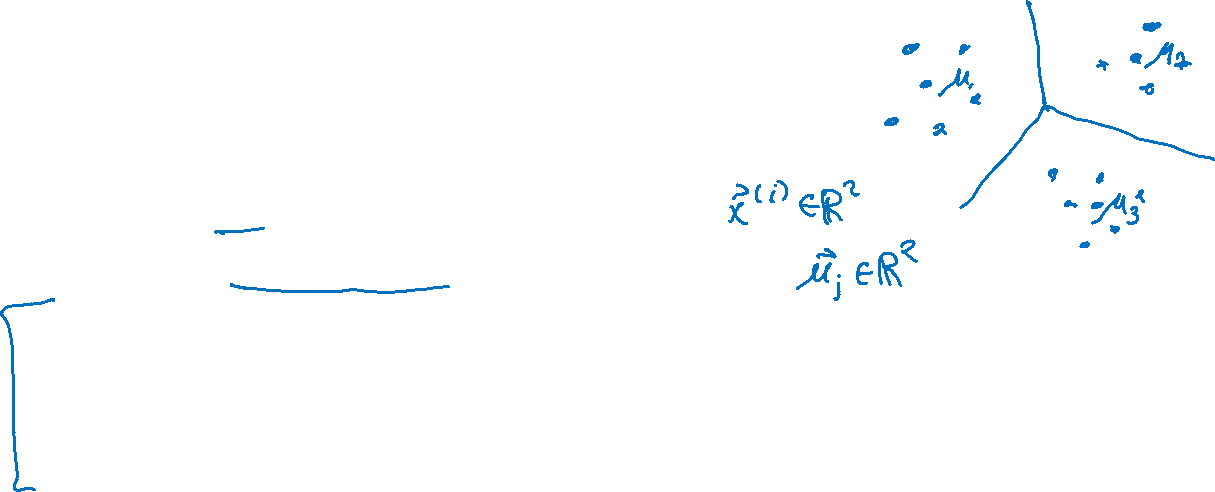 μ₁
μ₂
μ₃
x⃗⁽ⁱ⁾ ∈ ℝ²
μ⃗ⱼ ∈ ℝ²